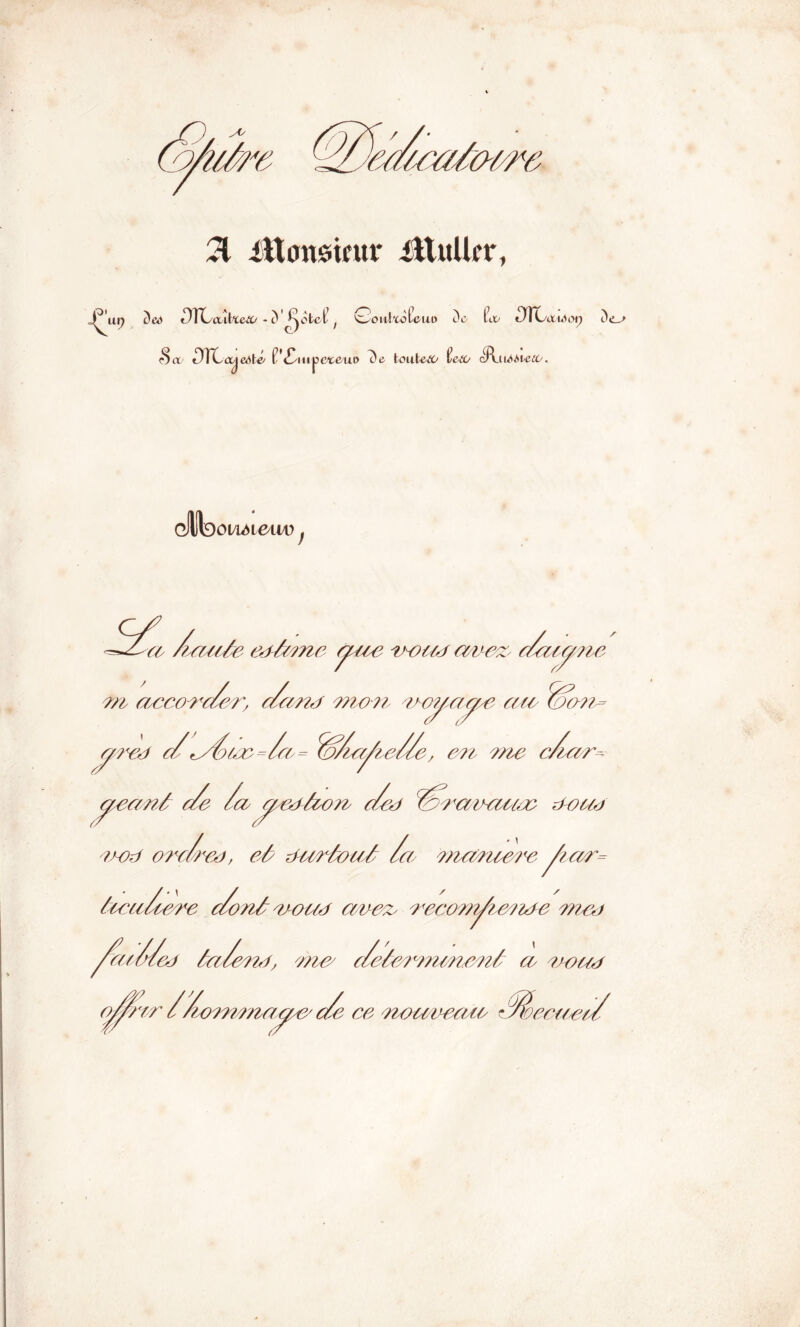 Epitre Dédicatoire
A Monsieur Muller,
L'un des Maitres-d'Hôtel, Contrôleur de la Maison de
Sa Majesté l'Empereur de toutes les Russies.
Monsieur,
La haute estime que vous avez daigné
m'accorder, dans mon voyage au Con=
grès d'Aix=la=Chapelle, en me char=
geant de la gestion des Travaux sous
vos ordres, et surtout la manière par=
ticulière dont vous avez recompensé mes
faibles talens, me déterminent à vous
offrir l'hommage de ce nouveau Recueil